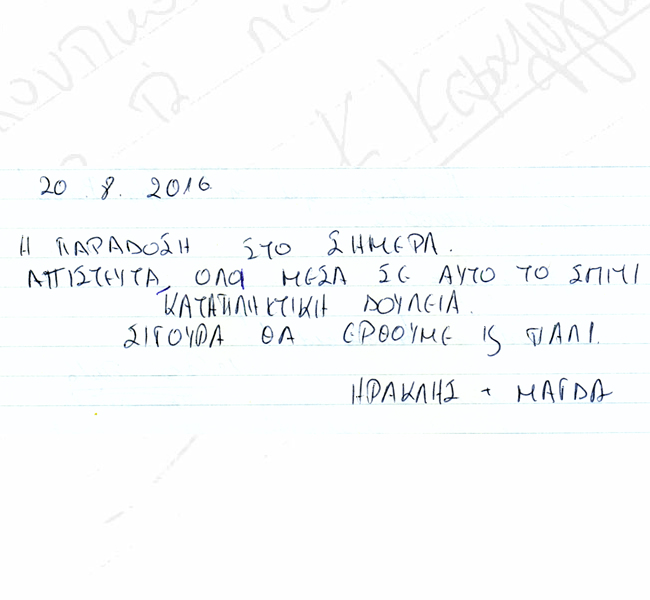 20 . 8 . 2016
Η ΠΑΡΑΔΟΣΗ ΣΤΟ ΣΗΜΕΡΑ.
ΑΠΙΣΤΕΥΤΑ, ΟΛΑ ΜΕΣΑ ΣΕ ΑΥΤΟ ΤΟ ΣΠΙΤΙ
ΚΑΤΑΠΛΗΚΤΙΚΗ ΔΟΥΛΕΙΑ.
ΣΙΓΟΥΡΑ ΘΑ ΕΡΘΟΥΜΕ ΠΑΛΙ.
ΗΡΑΚΛΗΣ + ΜΑΓΔΑ